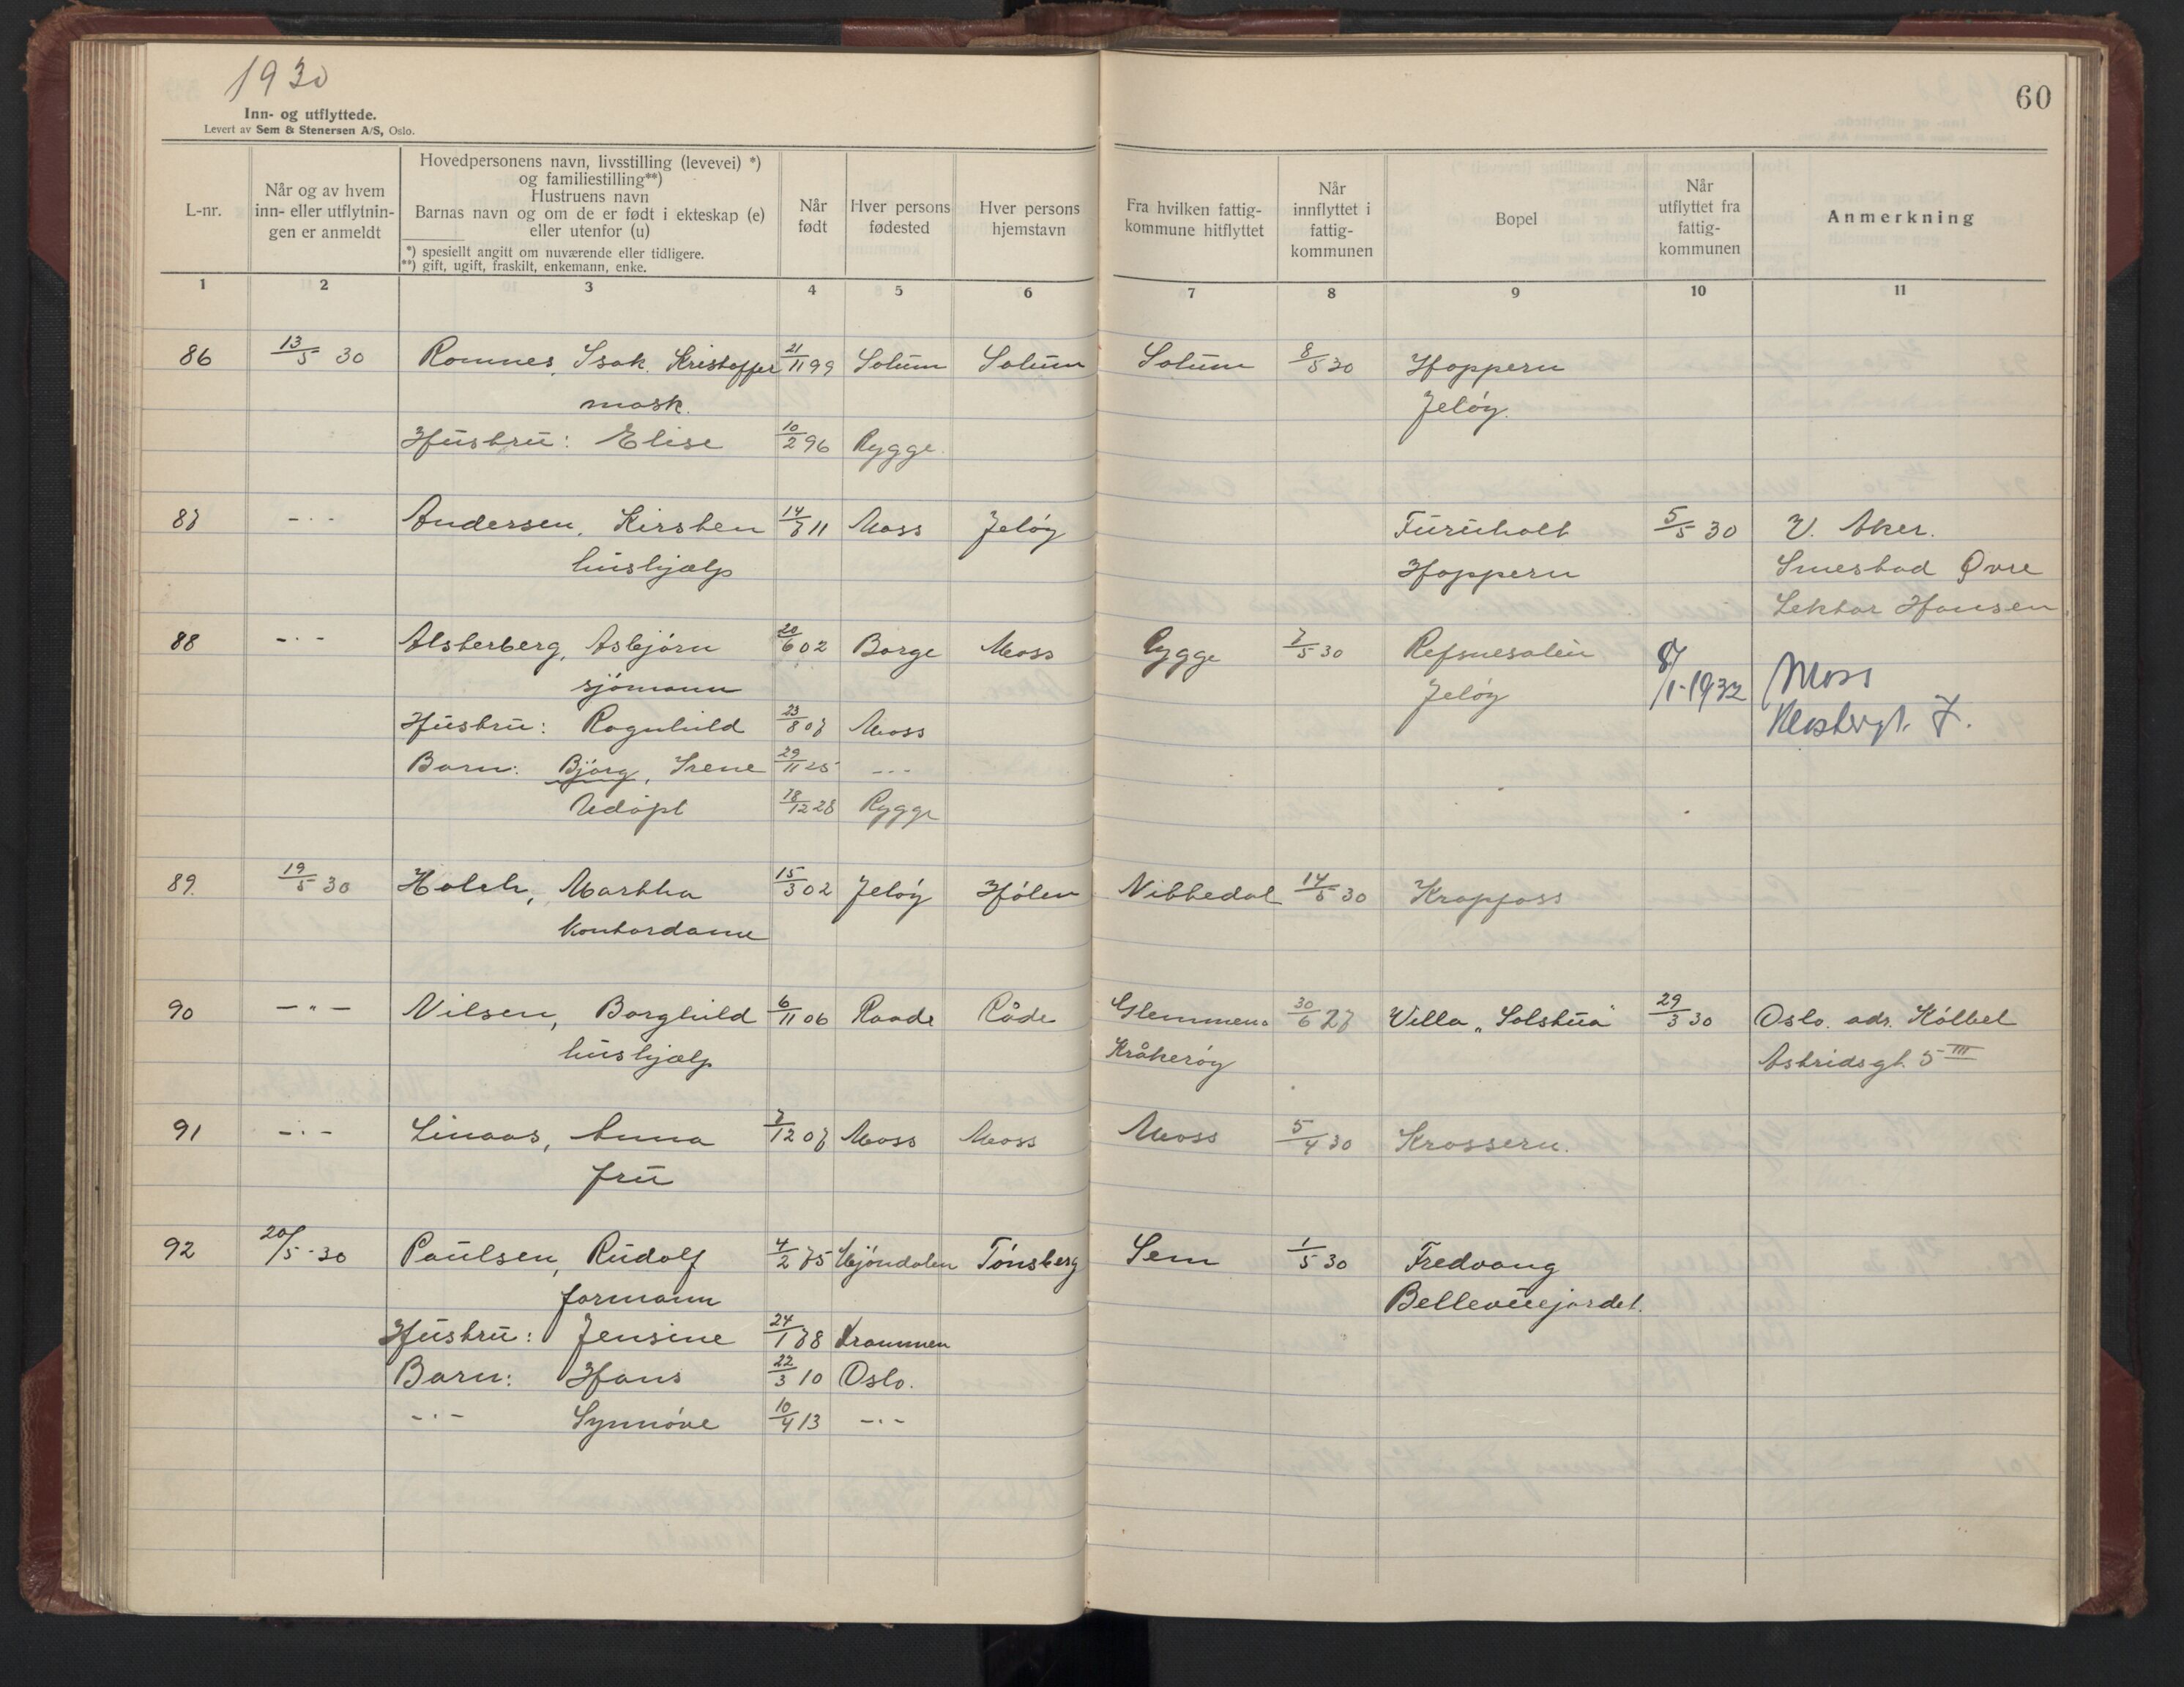 1930
60
Inn- og utflyttede.
Levert av Sem & Stenersen A/S, Oslo.
L-nr.
Når og av hvem inn- eller utflytnin-gen er anmeldt
Hovedpersonens navn, livsstilling (levevei) *)
og familiestilling**)
Hustruens navn
Barnas navn og om de er født i ekteskap (e)
eller utenfor (u)
*) spesielt angitt om nuværende eller tidligere.
**) gift, ugift, fraskilt, enkemann, enke.
Når født
Hver persons fødested
Hver persons hjemstavn
Fra hvilken fattig-kommune hitflyttet
Når innflyttet i fattig-kommunen
Bopel
Når utflyttet fra fattig-kommunen
Anmerkning
1 2 3 4 5 6 7 8 9 10 11
86 13/5 30 Romnes, Isak. Kristoffer 21/11 99 Solum Solum Solum 8/5 30 Hoppern
mask. Jeløy.
Hustru: Elise 10/2 96 Rygge.
87 -"- Andersen, Kirsten 14/7 11 Moss Jeløy Furuholt 5/5 30 V. Aker.
hushjælp Hoppern Smestad Øvre
Lektor Hansen.
88 -"- Alsterberg, Asbjørn 20/6 02 Borge Moss Rygge 7/5 30 Refsnesalèn 8/1-1932 Moss
sjømann Jeløy
Hustru: Ragnhild 23/8 07 Moss
Barn: Bjørg, Irene 29/11 25 -"-
Udøpt 18/12 28 Rygge
89. 19/5 30 Holch, Martha 15/3 02 Jeløy Hølen Nittedal 14/5 30 Krapfoss
Kontordame
90 -"- Nilsen, Borghild 6/11 06 Raade Råde Glemmen. 30/6 27 Villa "Solstua" 29/3 30 Oslo. adr. Kølbel
hushjælp Kråkerøy Astridsgt. 5 III
91 -"- Linaas, Anna 7/12 07 Moss Moss Moss 5/4 30 Krossern.
fru
92 20/5-30 Paulsen, Rudolf 4/2 75 Mjøndalen Tønsberg Sem 1/5 30 Fredvang
formann Bellevuejordet.
Hustru: Jensine 24/1 78 Drammen
Barn: Hans 22/3 10 Oslo.
-"- Synnøve 10/4 13 -"-